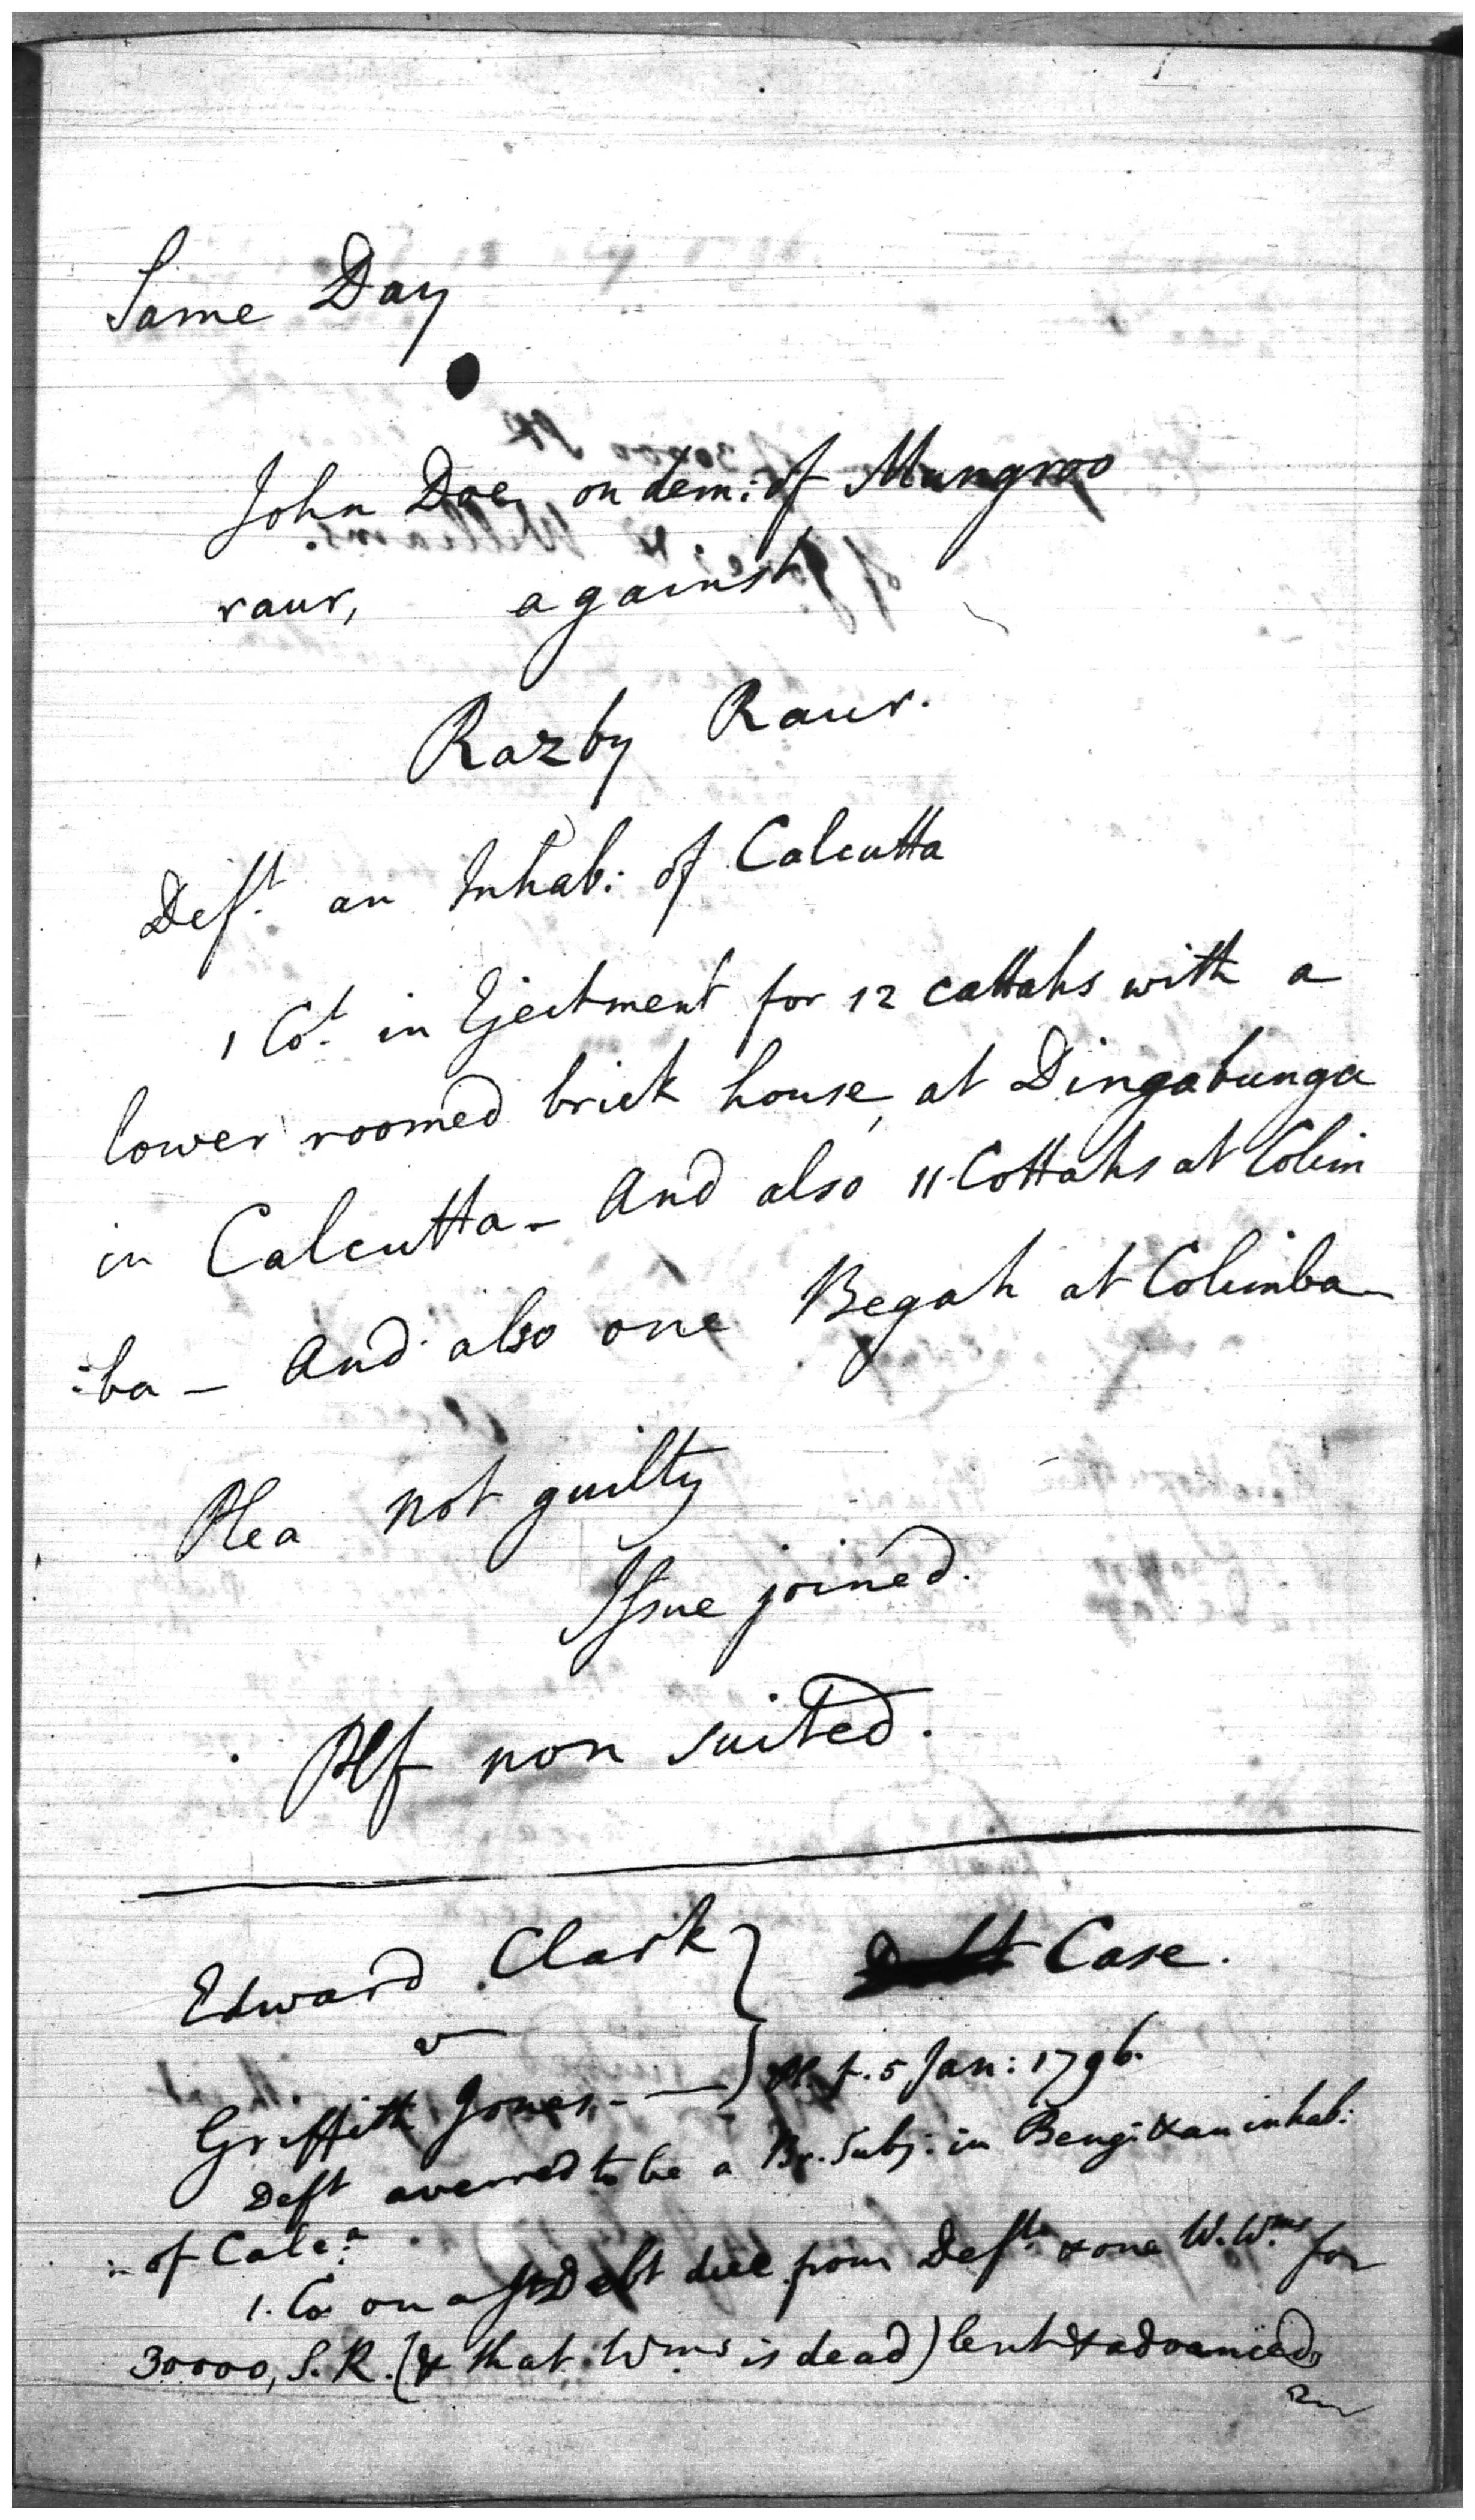 Same Day
John Doe, on dem: of Mungroo
raur, against
Razby Raur.
Deft. an Inhab: of Calcutta
1 Cot. in Ejectment for 12 Cattahs with a
lower roomed brick house, at Dingabunga
in Calcutta - And also 11 Cottahs at Colim
:ba - And also one Begah at Colimba -
Plea not guilty
Issue joined.
Plf non suited.
Edward Clark } Case.
v
Griffith Jones. - } Pl. f. 5 Jan: 1796.
Deft averred to be a Br. Subj: in Beng: & an inhab:
:- of Calca.
1. Co on a Debt due from Deft. & one W. Wms for
30000, S. R. (& that Wms is dead) lent & advanced